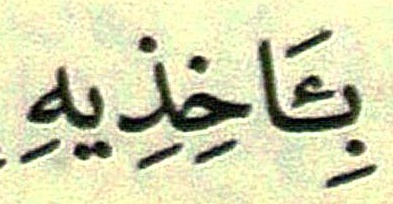 بِـَٔاخِذِيهِ